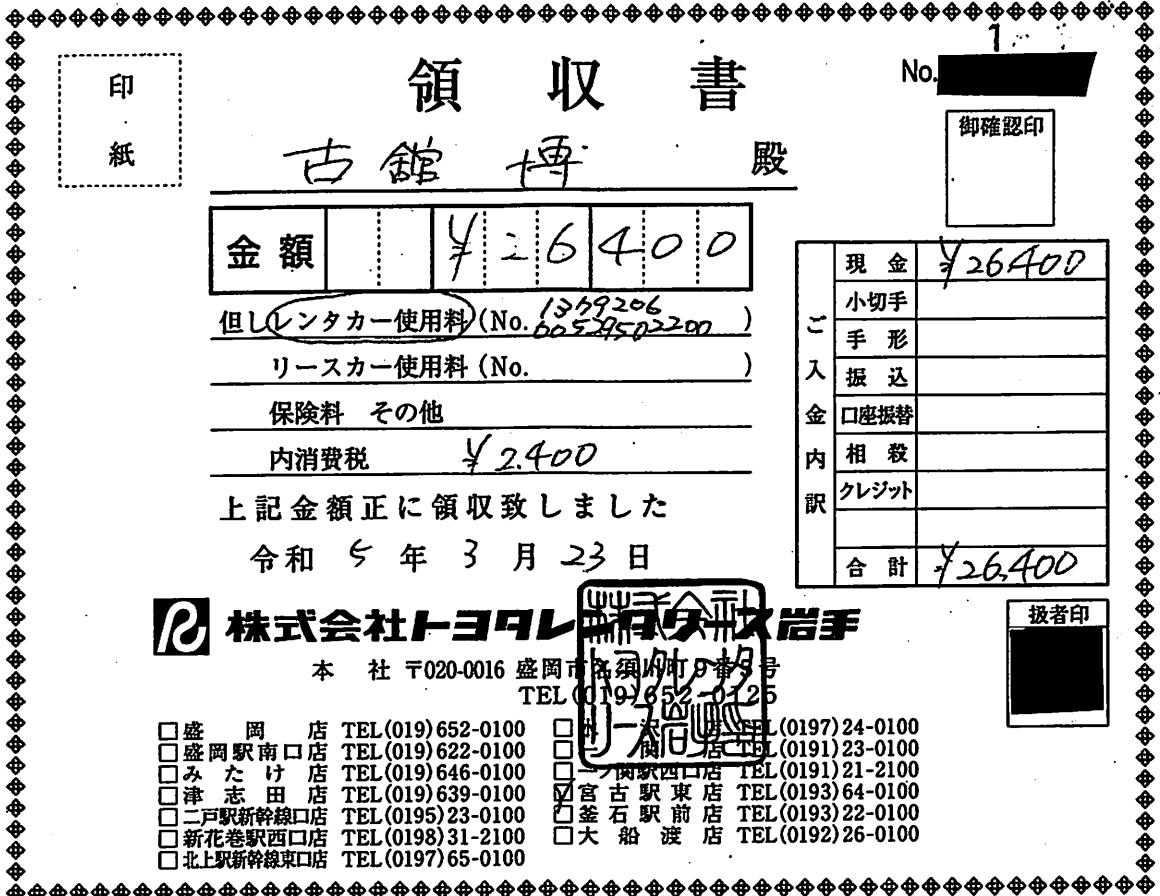 1
No.
印紙
領収書
御確認印
古舘 博 殿
金額 ¥26400
但しレンタカー使用料(No. )
リースカー使用料(No. )
保険料 その他
内消費税 ¥2,400
上記金額正に領収致しました
令和5年3月23日
ご入金内訳
現金 ¥26,400
小切手
手形
振込
口座振替
相殺
クレジット
合計 ¥26,400
扱者印
R 株式会社トヨタレンタリース岩手
本社 〒020-0016 盛岡市名須川町9番5号
TEL(019)652-0125
□盛岡店 TEL(019)652-0100
□盛岡駅南口店 TEL(019)622-0100
□みたけ店 TEL(019)646-0100
□津志田店 TEL(019)639-0100
□二戸駅新幹線口店 TEL(0195)23-0100
□新花巻駅西口店 TEL(0198)31-2100
□北上駅新幹線東口店 TEL(0197)65-0100
□水沢店 TEL(0197)24-0100
□一関店 TEL(0191)23-0100
□一ノ関駅西口店 TEL(0191)21-2100
☑宮古駅東店 TEL(0193)64-0100
□釜石駅前店 TEL(0193)22-0100
□大船渡店 TEL(0192)26-0100
株式会社
トヨタレンタ
リース岩手